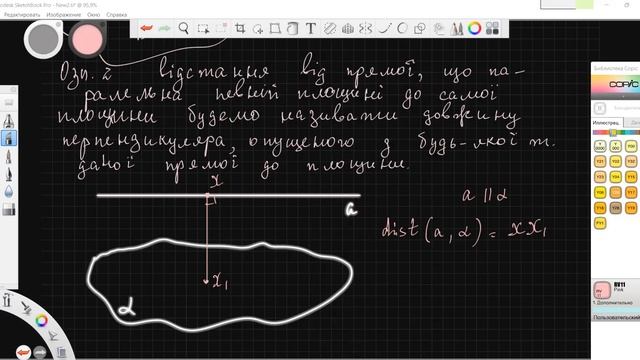 Autodesk SketchBook Pro - New2.tif @ 95,9%
Редактировать Изображение Окно Справка
Озн. 2 відстання від прямої, що па-
ралельна певній площині до самої
площини будемо називати довжину
перпендикуляра, опущеного з будь-якої т.
даної прямої до площини.
x
a
a || α
dist(a, α) = xx₁
x₁
α
Библиотека Copic
COPIC
Иллюстрац.
RV11
Pink
1.Дополнительно
Пользовательский